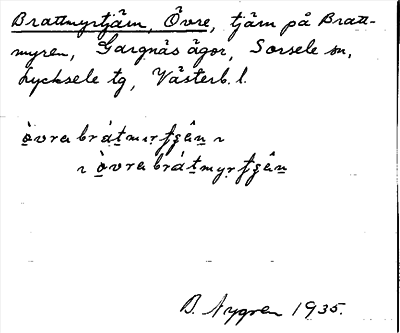 Brattmyrtjärn, Övre, tjärn på Bratt-
myren, Gargnäs ägor, Sorsele sn,
Lycksele tg, Västerb. l.
B. Nygren 1935.